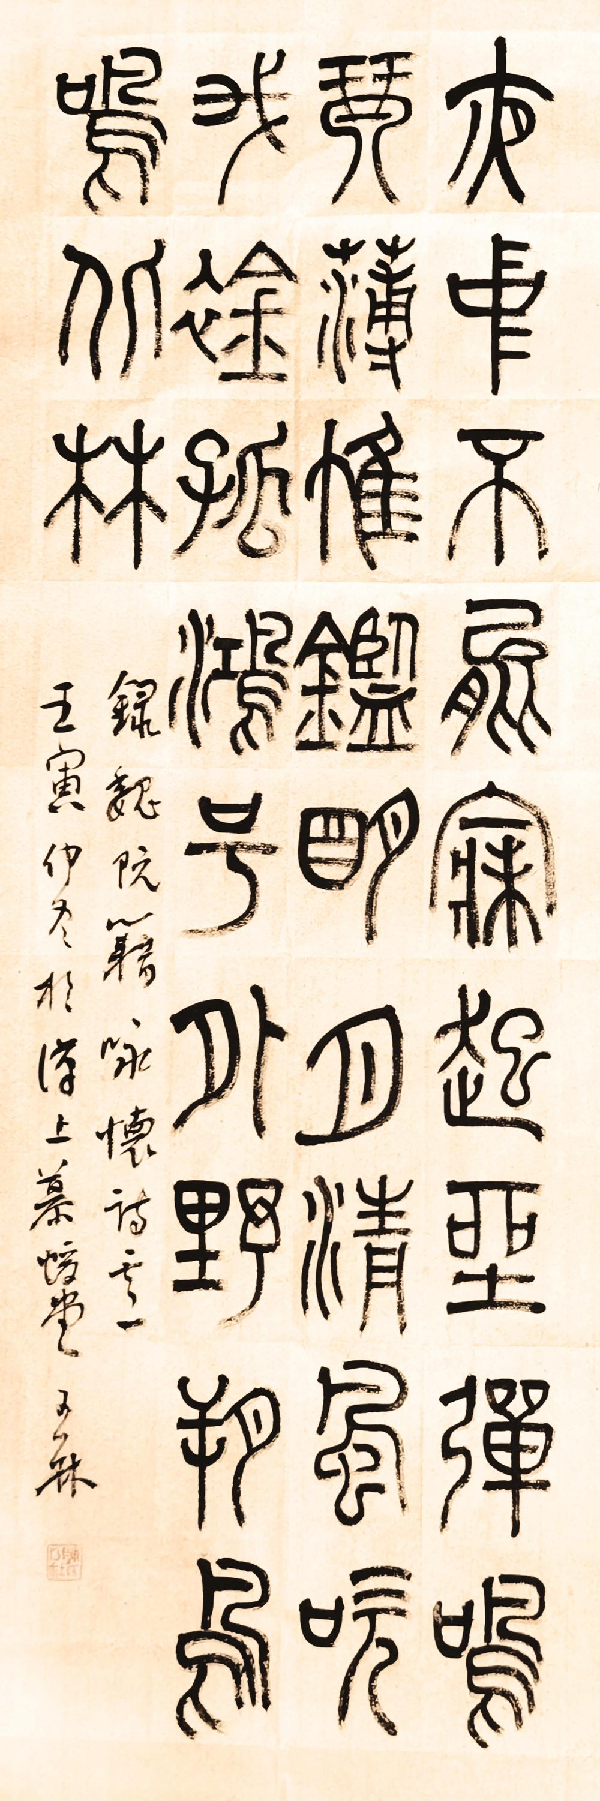 夜中不能寐起坐彈鳴
琴薄帷鑑明月清風吹
我䘳孤鴻号外野朔鳥
鳴北林
錄魏阮籍咏懷詩其一
壬寅仲冬於漢上慕蝯堂